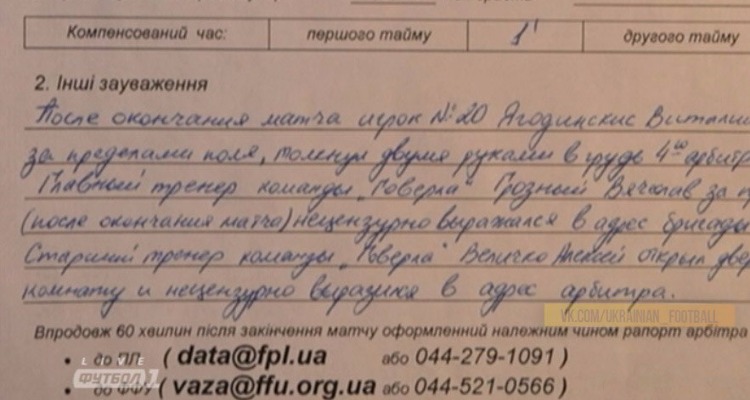 Компенсований час: першого тайму 1' другого тайму
2. Інші зауваження
После окончания матча игрок №20 Ягодинскис Виталий
за пределами поля, толкнул двумя руками в грудь 4го арбитр
Главный тренер команды "Говерла" Грозный Вячеслав за п
(после окончания матча) нецензурно выражался в адрес бригады
Старший тренер команды "Говерла" Величко Алексей открыл двер
комнату и нецензурно выразился в адрес арбитра.
VK.COM/UKRAINIAN_FOOTBALL
Впродовж 60 хвилин після закінчення матчу оформленний належним чином рапорт арбітра
• до ПЛ ( data@fpl.ua або 044-279-1091 )
LIVE
ФУТБОЛ 1
• до ФФУ ( vaza@ffu.org.ua або 044-521-0566 )